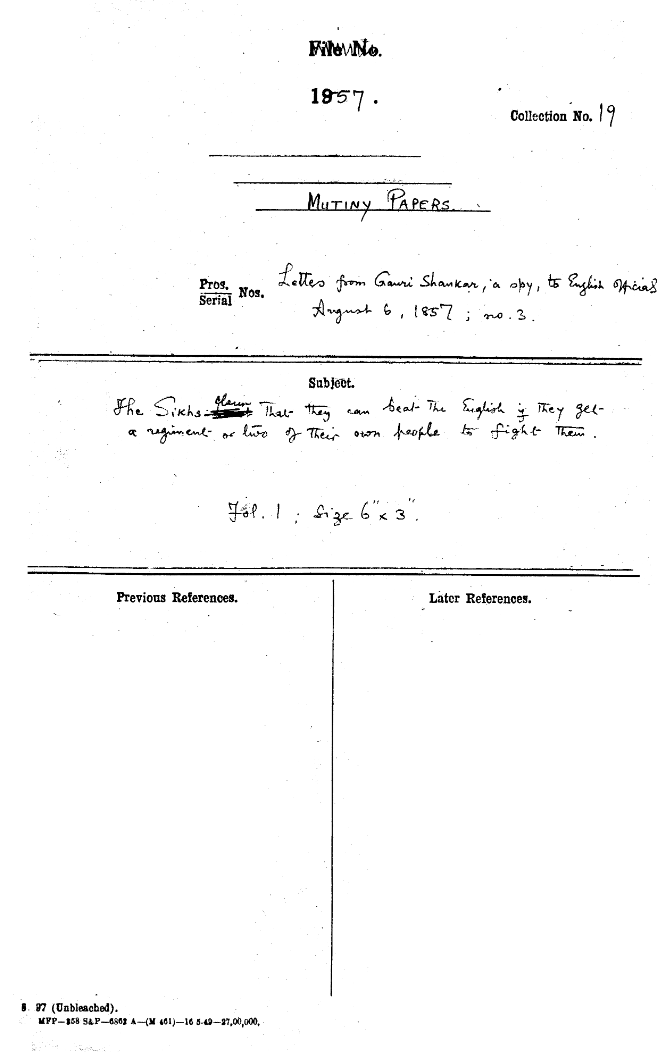 File No.
1857.
Collection No. 19
MUTINY PAPERS.
Pros. Serial Nos. Letter from Gauri Shankar, a spy, to English officials
August 6, 1857; no. 3.
Subject.
The Sikhs claim that they can beat the English if they get
a regiment or two of their own people to fight them.
Fol. 1; Size 6" x 3".
Previous References. Later References.
S. 97 (Unbleached).
MFP—858 S&P—6862 A—(M 461)—16 5-49—27,00,000.